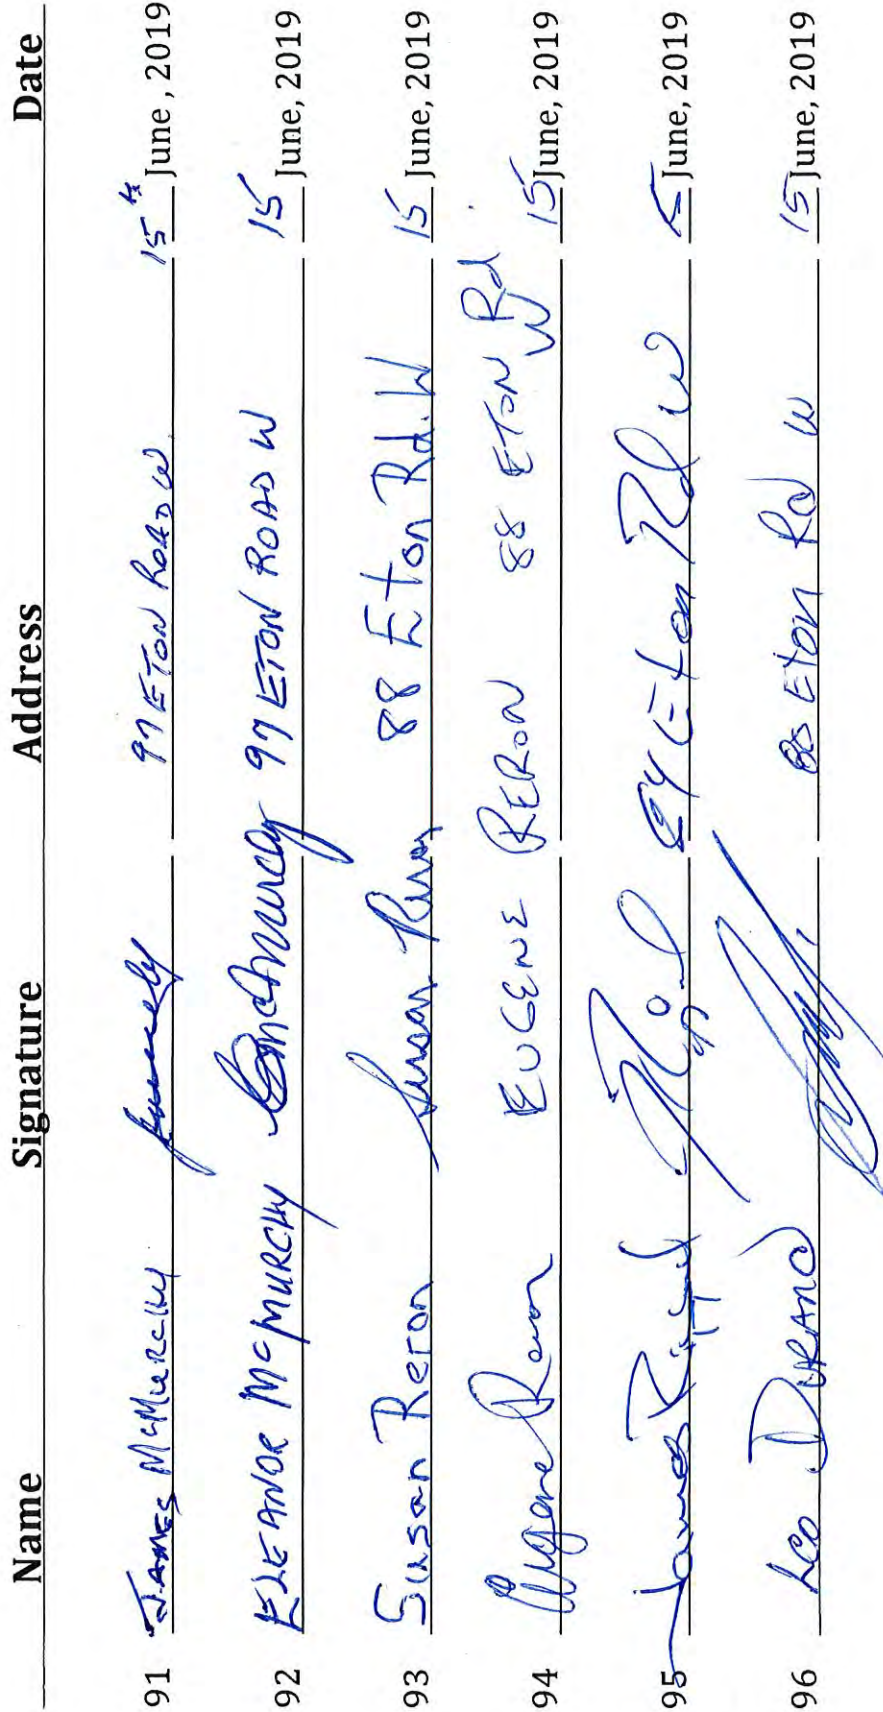 Name Signature Address Date
91 JAMES McMURCHY 97 ETON ROAD W. 15th June, 2019
92 ELEANOR McMURCHY EMcMurchy 97 ETON ROAD W 15 June, 2019
93 Susan Reron Susan Reron 88 Eton Rd. W 15 June, 2019
94 Eugene Reron EUGENE RERON 88 ETON Rd W 15 June, 2019
95 James 84 Eton Rd W June, 2019
96 Leo DURAND Eton Rd W 15 June, 2019